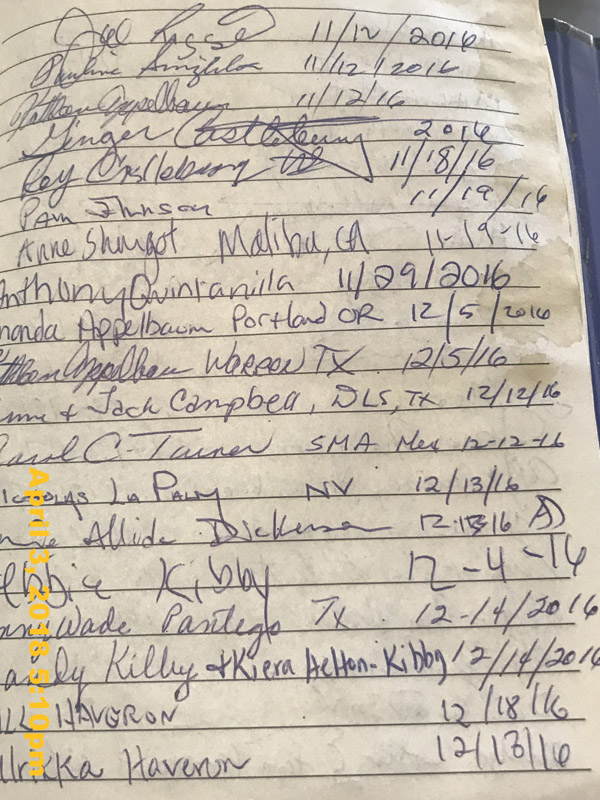 Joel 11/12/2016
Pauline 11/12/2016
Matthew Appelbaum 11/12/16
Ginger Castleberry 2016
Roy Castleberry 11/18/16
Pam Johnson 11/19/16
Anne Shurgot Malibu, CA 11-19-16
Anthony Quintanilla 11/29/2016
manda Appelbaum Portland OR 12/5/2016
Appelbaum Warren TX 12/5/16
& Jack Campbell, DLS, TX 12/12/16
arol C. Turner SMA Mex 12-12-16
icholas La Palm NV 12/13/16
Allide Dickerson 12-13-16
ebbie Kibby 12-4-16
Wade Pantego Tx 12-14/2016
andy Kilby + Kiera Helton-Kibby 12/14/2016
ILL HAVERON 12/18/16
Ulrikka Haveron 12/13/16
April 3, 2018 5:10pm